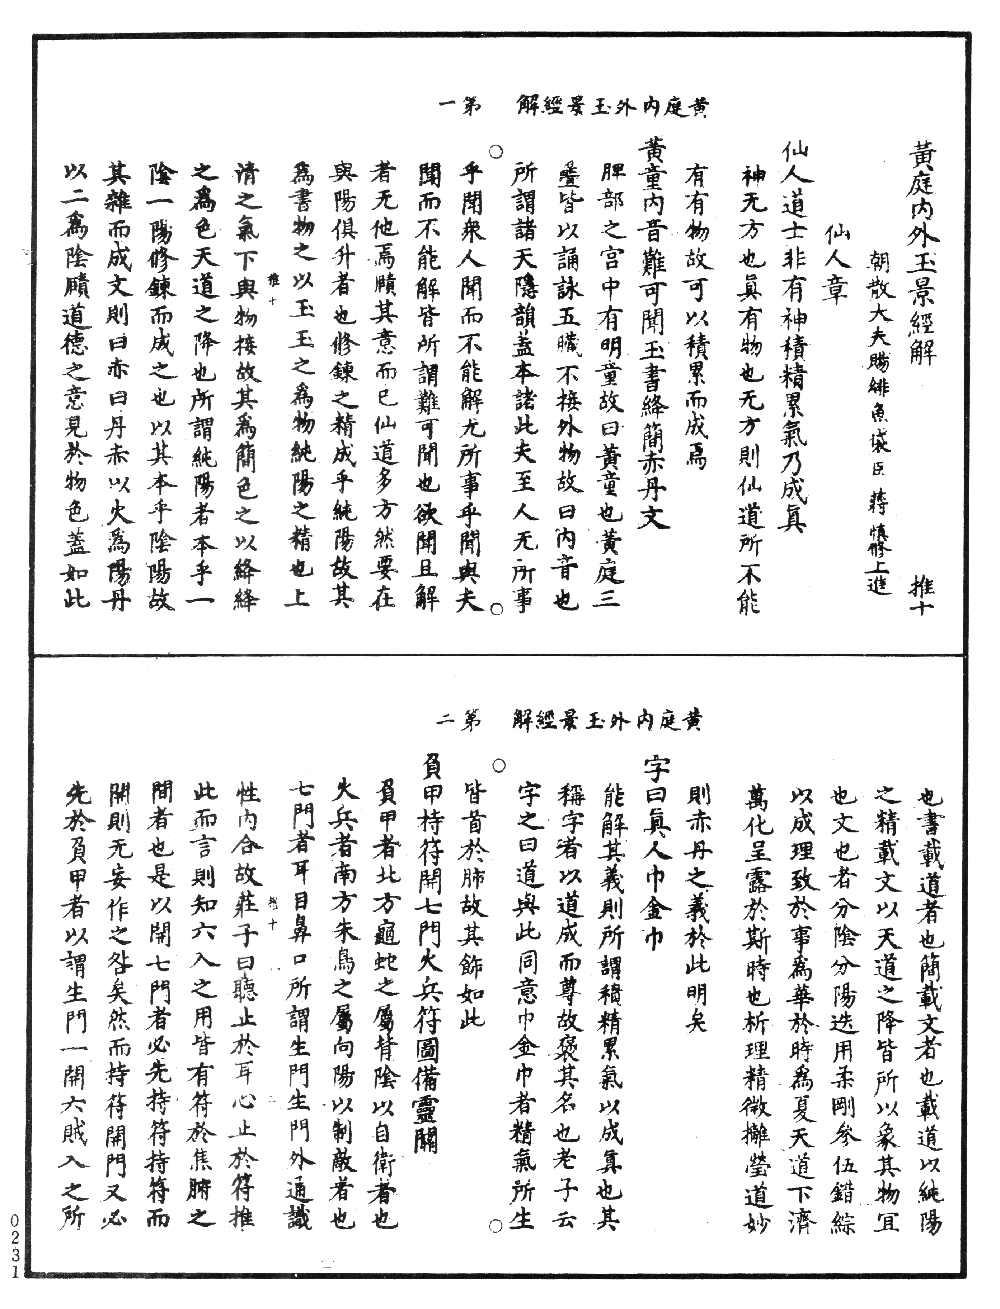 黃庭內外玉景經解　第一
黃庭內外玉景經解　推十
朝散大夫賜緋魚袋臣蔣慎修上進
仙人章
仙人道士非有神積精累氣乃成真
神无方也真有物也无方則仙道所不能
有有物故可以積累而成焉
黃童內音難可聞玉書絳簡赤丹文
脾部之宮中有明童故曰黃童也黃庭三
疊皆以誦詠五臟不接外物故曰內音也
所謂諸天隱韻蓋本諸此夫至人无所事
乎聞衆人聞而不能解尤所事乎聞與夫
聞而不能解皆所謂難可聞也欲聞且解
者无他焉賾其意而已仙道多方然要在
與陽俱升者也修鍊之精成乎純陽故其
為書物之以玉玉之為物純陽之精也上
推十
清之氣下與物接故其為簡色之以絳絳
之為色天道之降也所謂純陽者本乎一
陰一陽修鍊而成之也以其本乎陰陽故
其雜而成文則曰赤曰丹赤以火為陽丹
以二為陰賾道德之意見於物色蓋如此
黃庭內外玉景經解　第二
也書載道者也簡載文者也載道以純陽
之精載文以天道之降皆所以象其物宜
也文也者分陰分陽迭用柔剛參伍錯綜
以成理致於事為華於時為夏天道下濟
萬化呈露於斯時也析理精微摛瑩道妙
則赤丹之義於此明矣
字曰真人巾金巾
能解其義則所謂積精累氣以成真也其
稱字者以道成而尊故褒其名也老子云
字之曰道與此同意巾金巾者精氣所生
皆首於肺故其飾如此
負甲持符開七門火兵符圖備靈關
負甲者北方龜蛇之屬背陰以自衛者也
火兵者南方朱鳥之屬向陽以制敵者也
七門者耳目鼻口所謂生門生門外通識
推十
性內合故莊子曰聽止於耳心止於符推
此而言則知六入之用皆有符於焦腑之
間者也是以開七門者必先持符持符而
開則无妄作之咎矣然而持符開門又必
先於負甲者以謂生門一開六賊入之所
0231